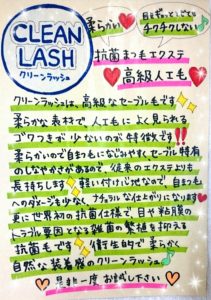 CLEAN
LASH
クリーンラッシュ
柔らかい
目元ずっとしてても
チクチクしない♪
抗菌まつ毛エクステ
高級人工毛
クリーンラッシュは、高級なセーブル毛です
柔らかな素材で、人工毛によく見られる
ゴワつきが少ないのが特徴です!!
柔らかいので自まつ毛になじみやすく、セーブル特有
のしなやかさがあるので、従来のエクステよりも
長持ちします 軽い付け心地なので、自まつ毛
へのダメージも少なく ナチュラルな仕上がりになります
更に世界初の抗菌仕様で目や粘膜の
トラブル要因となる雑菌の繁殖を抑える
抗菌毛です 衛生的で柔らかく
自然な装着感のクリーンラッシュ♪
是非一度お試し下さい